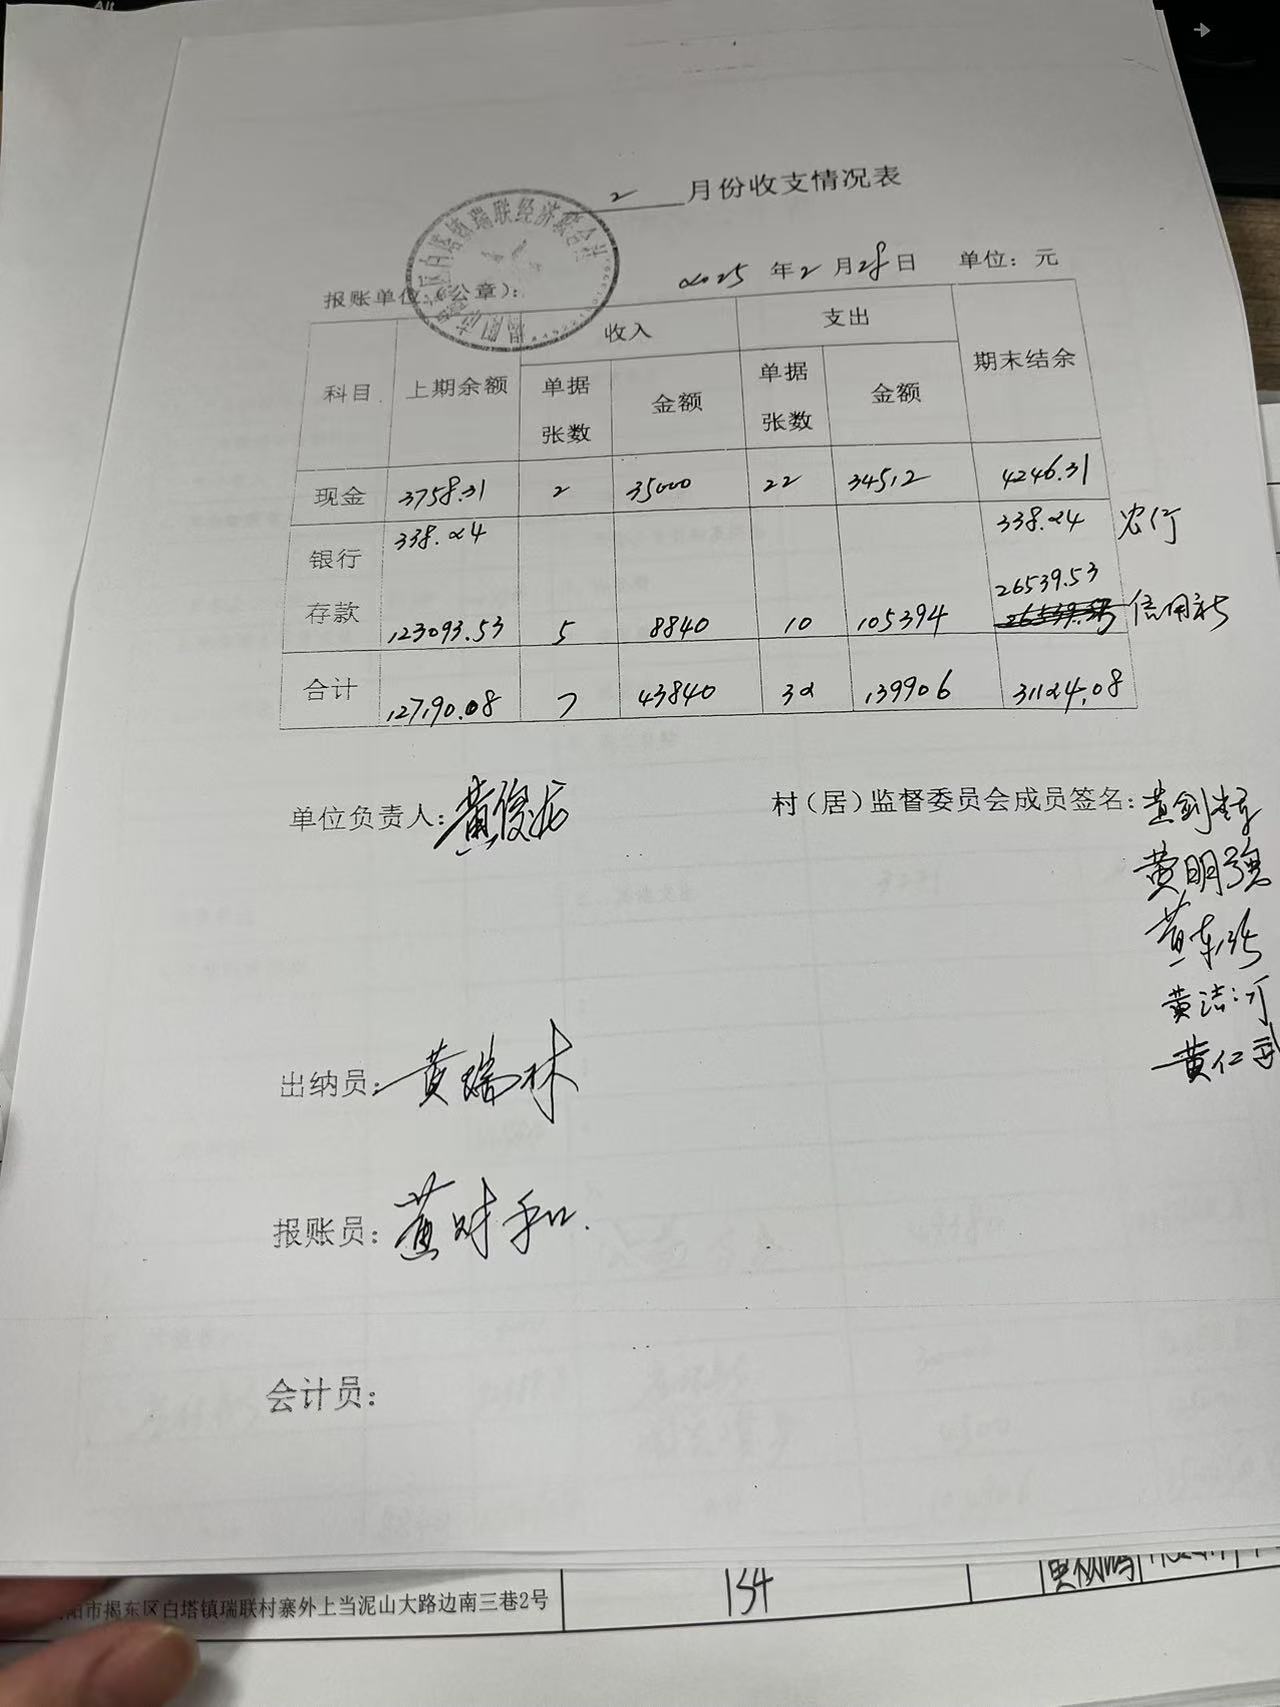 2 月份收支情况表
揭阳市揭东区白塔镇瑞联经济联合社
报账单位（公章）： 2025 年 2 月 28 日 单位：元
科目 上期余额 收入 支出 期末结余
单据张数 金额 单据张数 金额
现金 3758.31 2 35000 22 34512 4246.31
银行存款 338.24 338.24 农行
123093.53 5 8840 10 105394 26539.53 信用社
合计 127190.08 7 43840 32 139906 31124.08
单位负责人：黄俊龙 村（居）监督委员会成员签名：
黄明强
出纳员：黄瑞林
报账员：黄财和
会计员：
阳市揭东区白塔镇瑞联村寨外上当泥山大路边南三巷2号 134